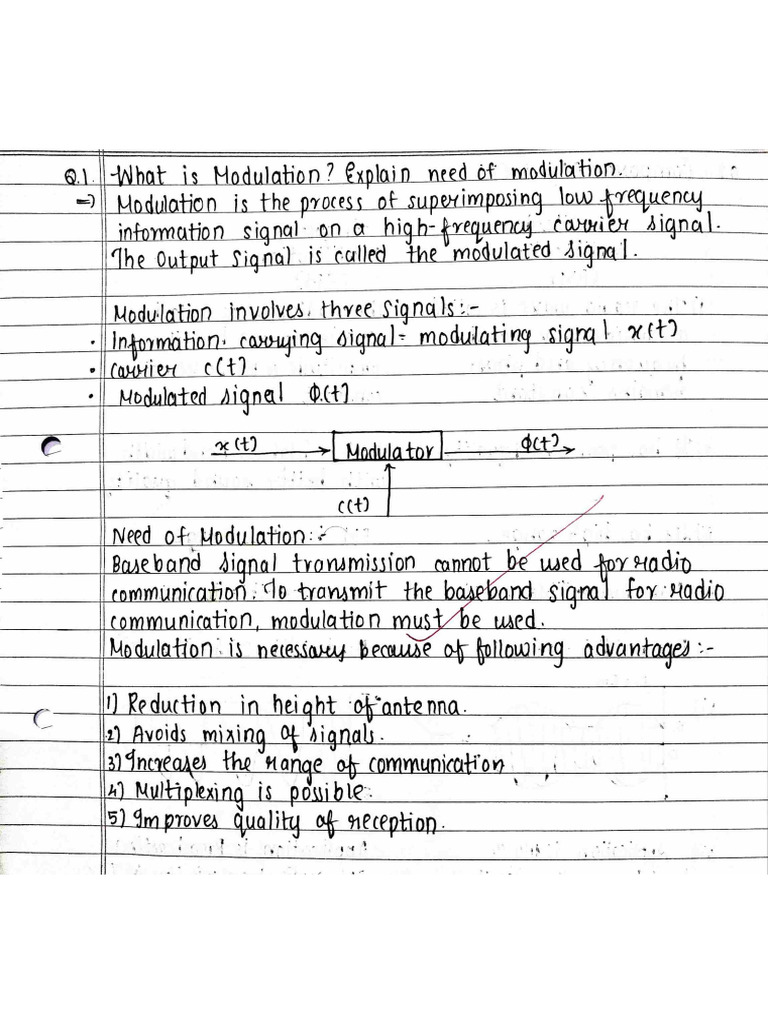 Q.1. What is Modulation? Explain need of modulation.
=) Modulation is the process of superimposing low frequency
information signal on a high-frequency carrier signal.
The Output Signal is called the modulated signal.
Modulation involves three signals:-
• Information carrying signal = modulating signal x(t)
• carrier c(t)
• Modulated signal Φ(t)
x(t) Modulator Φ(t)
c(t)
Need of Modulation:-
Baseband signal transmission cannot be used for radio
communication. To transmit the baseband signal for radio
communication, modulation must be used.
Modulation is necessary because of following advantages:-
1) Reduction in height of antenna.
2) Avoids mixing of signals.
3) Increases the range of communication
4) Multiplexing is possible.
5) Improves quality of reception.